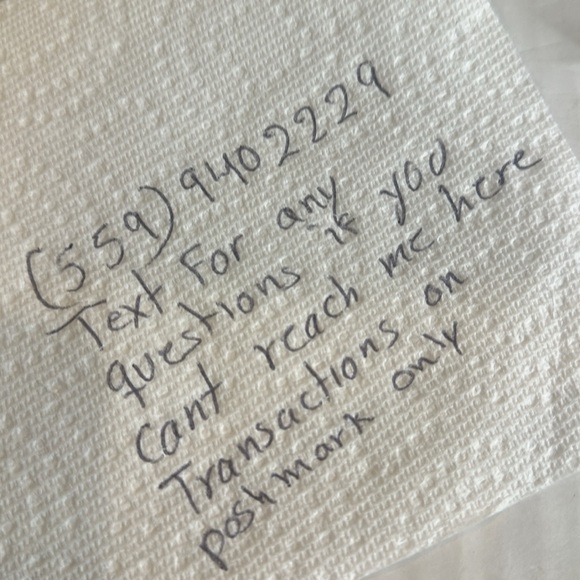 (559) 9402229
Text For any
questions if you
cant reach me here
Transactions on
poshmark only